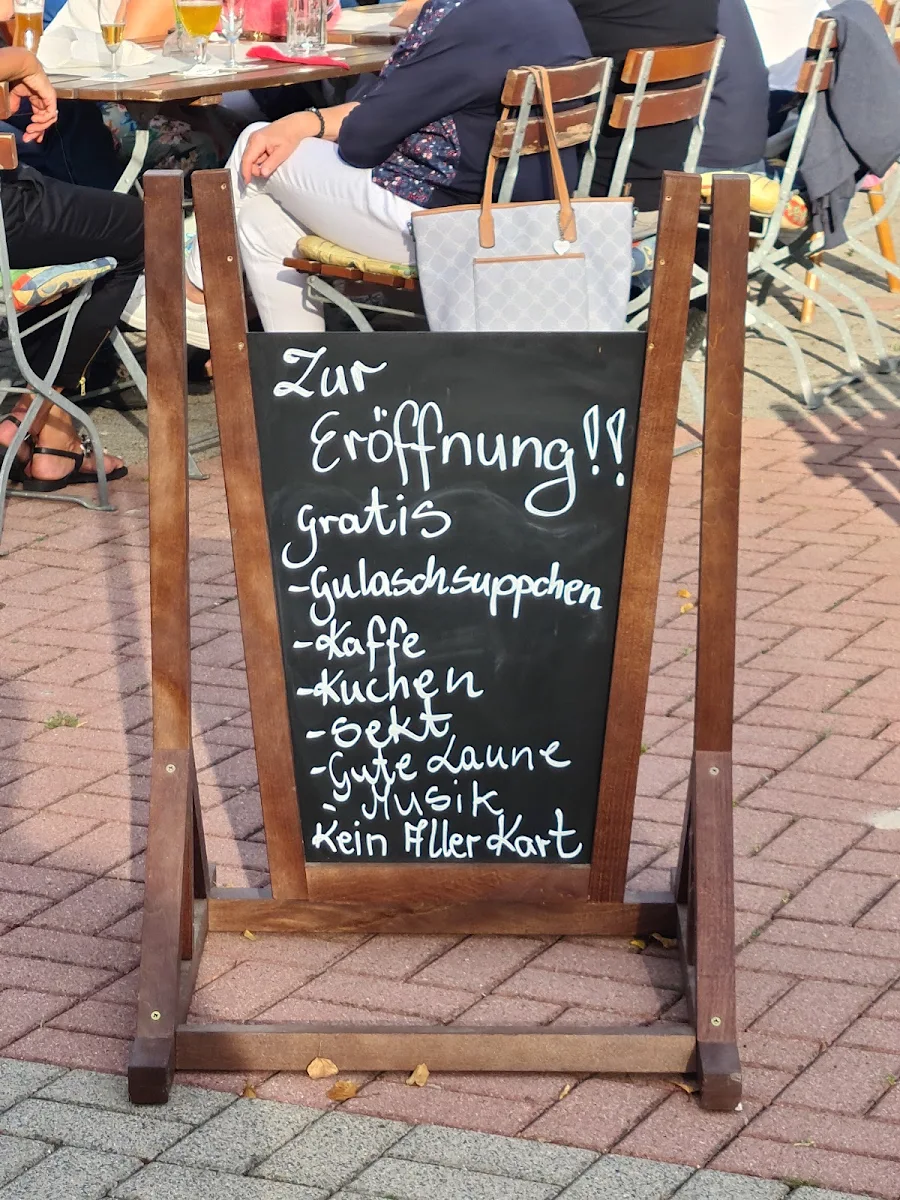 Zur
Eröffnung!!
Gratis
-Gulaschsuppchen
-Kaffe
-Kuchen
-Sekt
-Gute Laune
- Musik
Kein Aller Kart